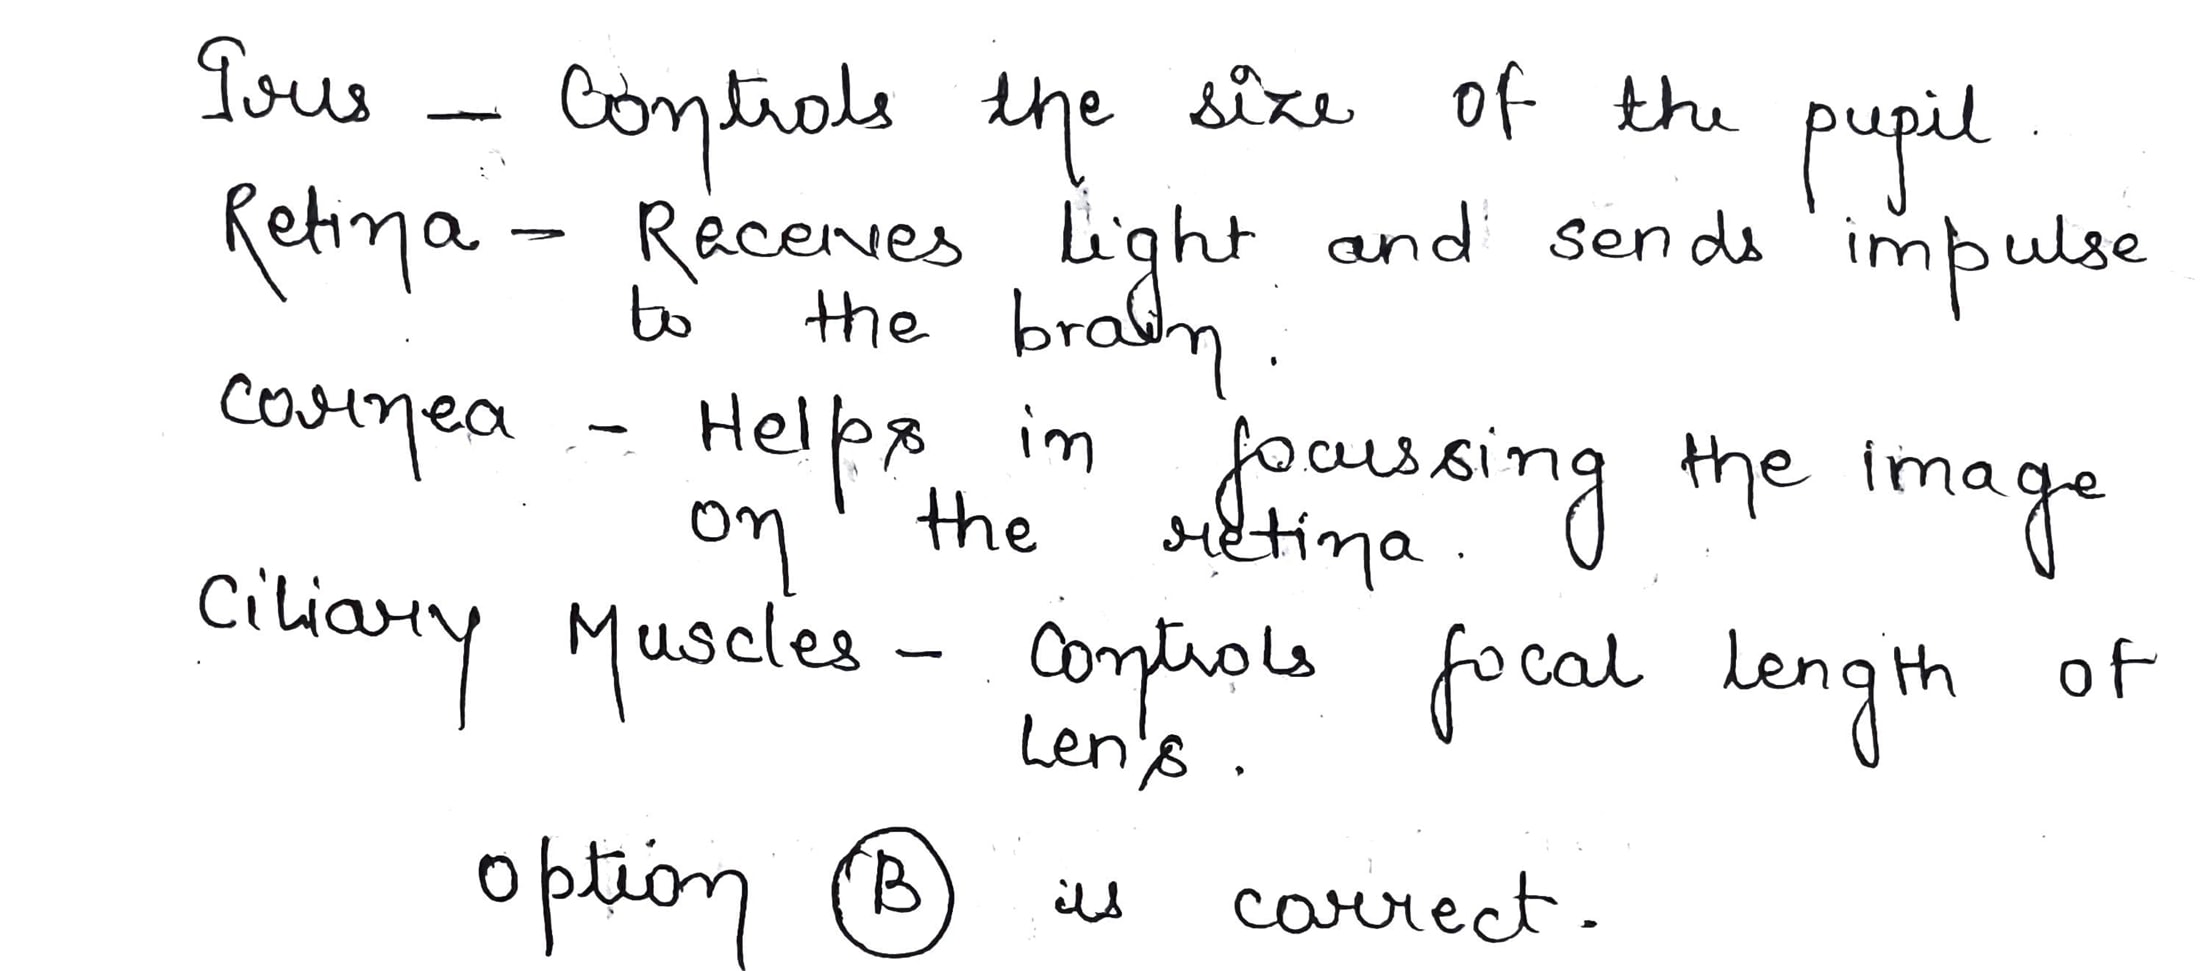 Iris - Controls the size of the pupil.
Retina - Receives light and sends impulse
to the brain.
Cornea - Helps in focussing the image
on the retina.
Ciliary Muscles - Controls focal length of
Lens.
option B is correct.